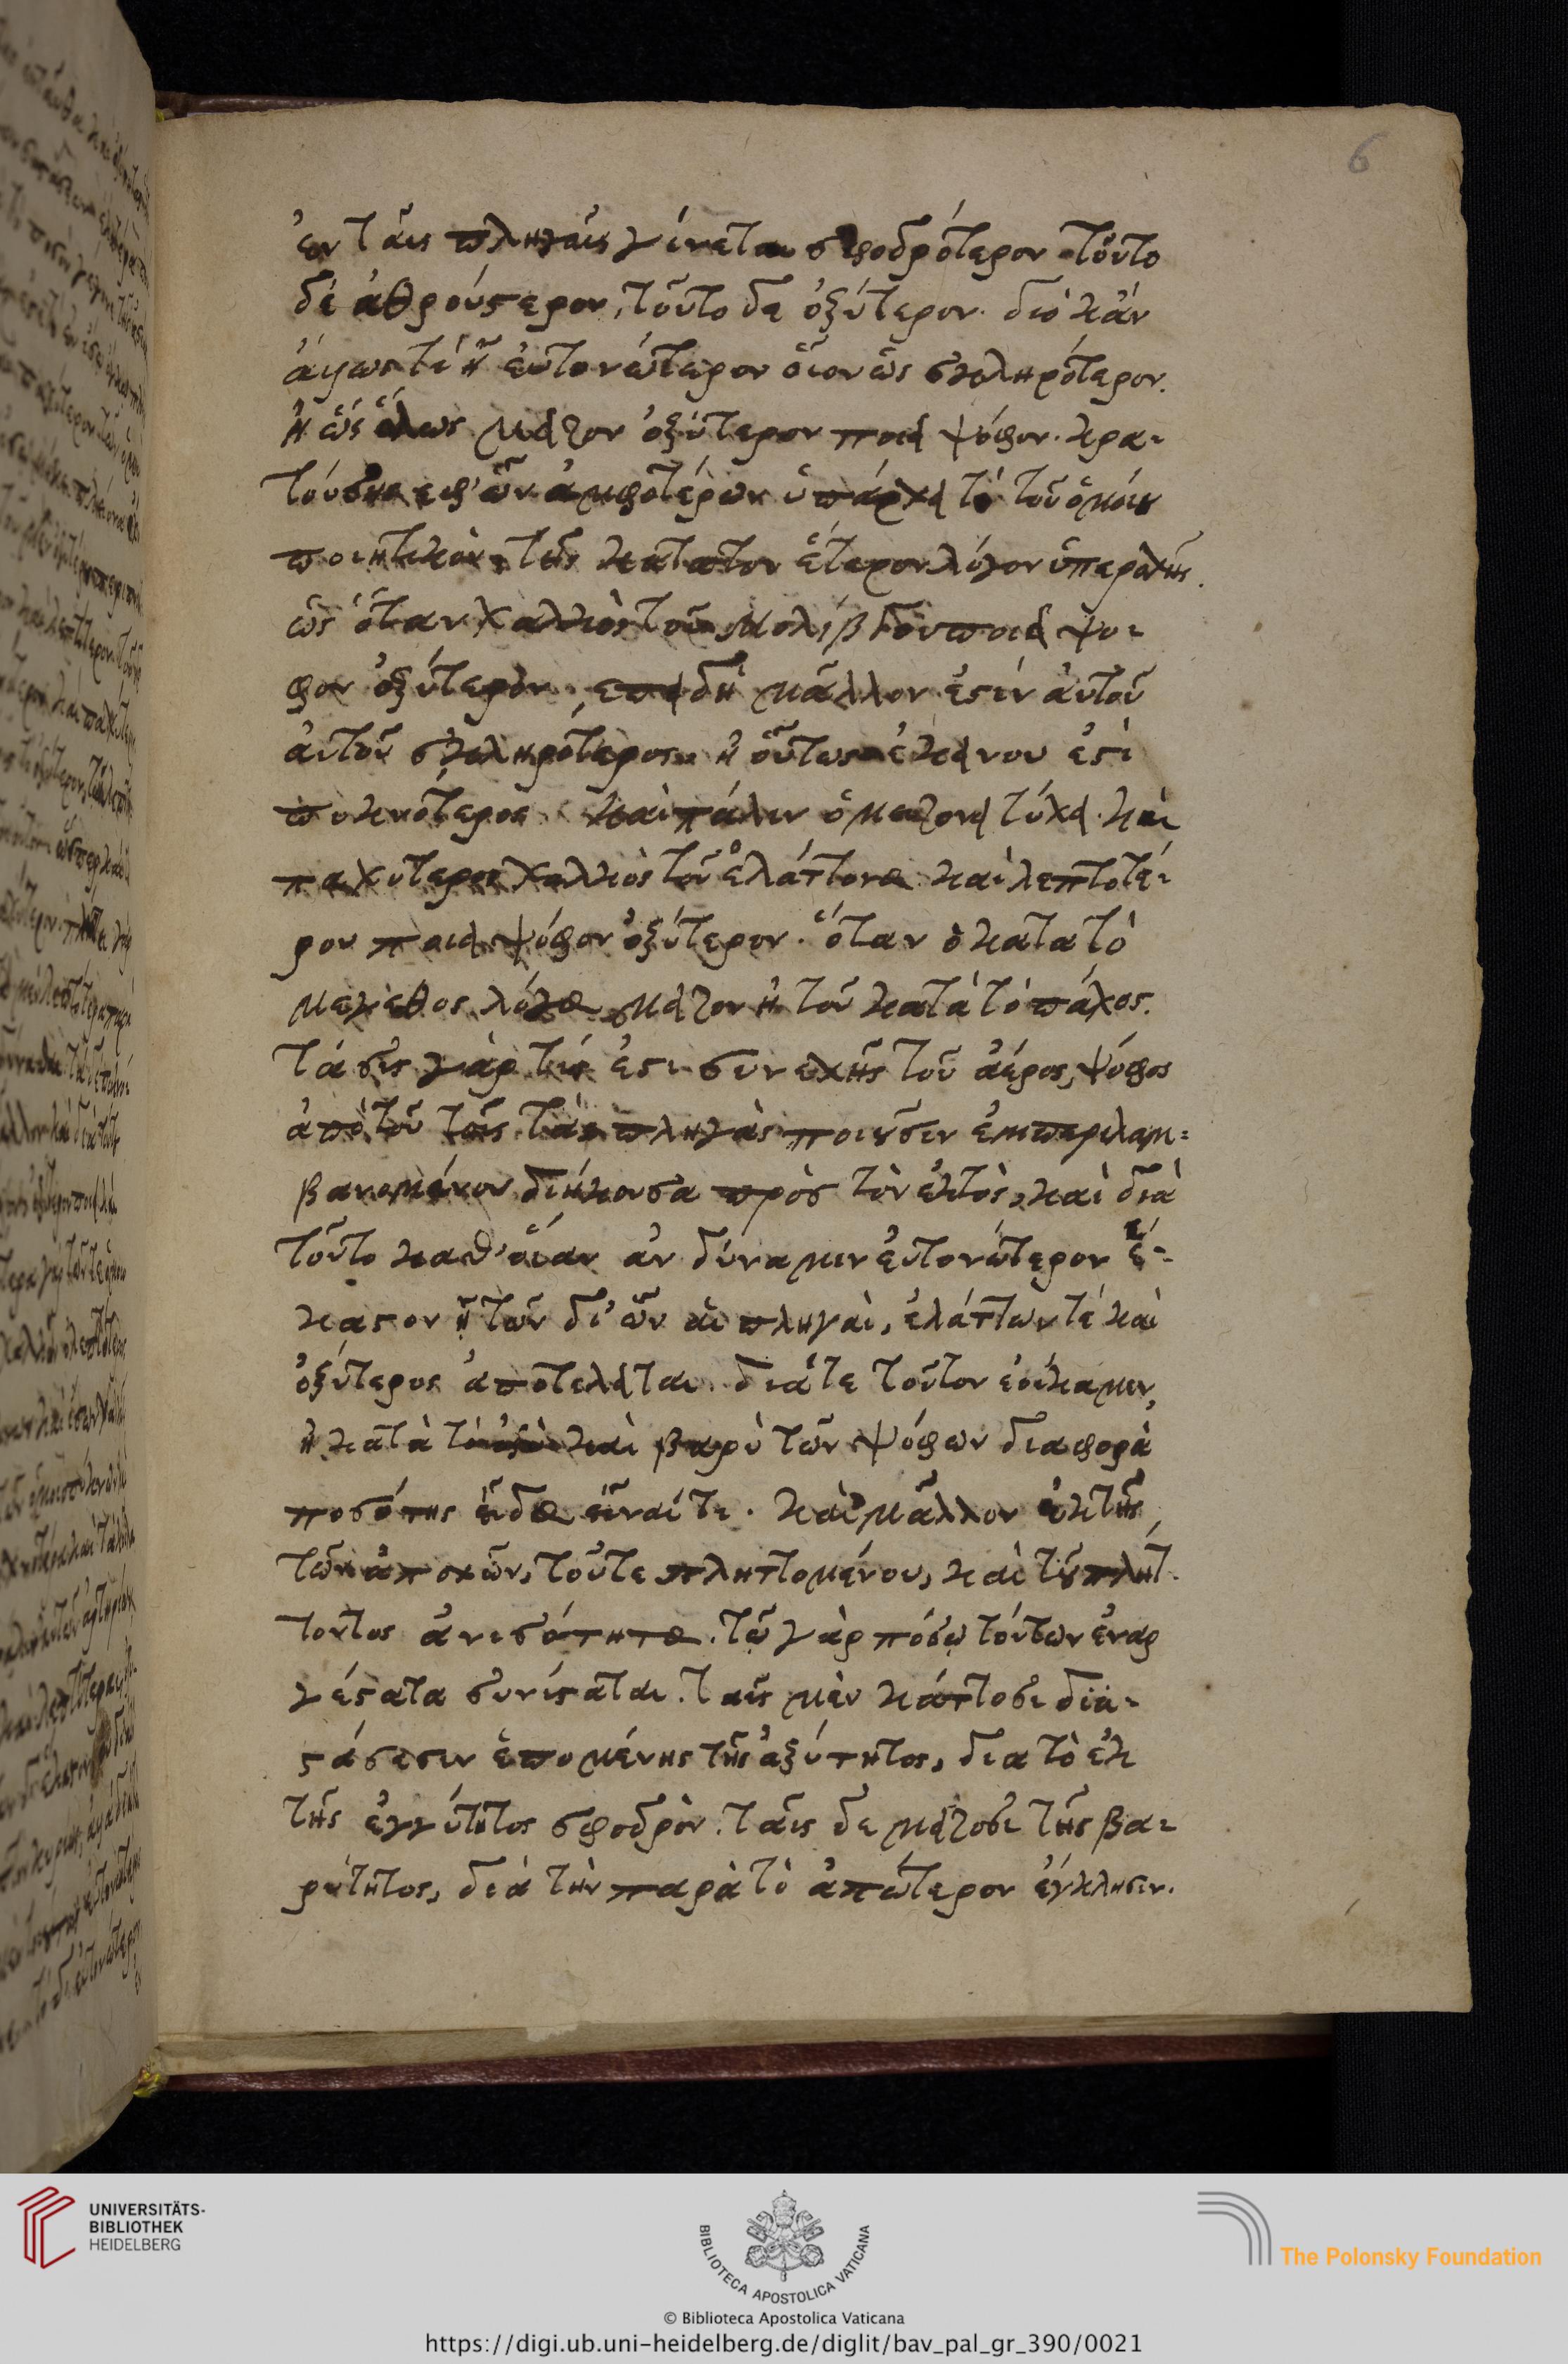 6
ἐν ταῖς πληγαῖς γίνεται σφοδρότερον τοῦτο
δὲ ἀθρούστερον, τοῦτο δὲ ὀξύτερον. διὸ κἂν
ἄλλως τί ἢ εὐτονώτερον οἷον ὡς σκληρότερον.
ἢ ὡς ὅλως μεῖζον ὀξύτερον ποιεῖ ψόφον. κρα-
τούσης ἐφ' ὧν ἀμφοτέρων ὑπάρχει τὸ τοῦ ὁμοίου
ποιητικὸν, τῆς κατὰ τον ἕτερον λόγον ὑπεροχῆς.
ὡς ὅταν χαλκὸς τοῦ μολίβδου ποιεῖ ψο-
φον ὀξύτερον, ἐπειδὴ μᾶλλον ἐστιν αὐτοῦ
αὐτοῦ σκληρότερος ἢ οὗτως ἐκείνου ἐστὶ
πυκνότερος. καὶ πάλιν ὁ μείζονει τύχει. καὶ
παχύτερος χαλκὸς τοῦ ἐλάττονος καὶ λεπτοτέ-
ρου ποιεῖ ψόφον ὀξύτερον. ὅταν ὁ κατα τὸ
μεγεθος λόγος μείζον ἢ τοῦ κατὰ τὸ πάχος.
τάσις γὰρ τίς ἐστι συνεχὴς τοῦ ἀέρος, ψόφος
ἀπὸ τοῦ τοῖς τὰς πληγὰς ποιοῦσιν ἐμπεριλαμ-
βανομένου διήκουσα πρὸς τὸν ἐκτὸς, καὶ διὰ
τοῦτο καθ' οἵαν ἀν δύναμιν εὐτονώτερον ἕ-
καστον ᾖ τῶν δι' ὧν αἱ πληγαὶ, ἐλάττων τὲ καὶ
ὀξύτερος ἀποτελεῖται. διάτε τοῦτον ἐοίκαμεν,
ἡ κατὰ τὸ ὀξὺ καὶ βαρὺ τῶν ψόφων διαφορὰ
ποσότης εἶδος εἶναί τι. καὶ μᾶλλον ἐκ τῆς
τῶν ἀποχῶν, τοῦτε πληττομένου, καὶ τοῦ πλήτ-
τοντος ἀνισότητος. τῷ γὰρ πόσῳ τούτων ἐναρ
γέστατα συνίσταται. ταῖς μὲν κάττοσι δια-
στάσεσιν ἑπομένης τῆς ὀξύτητος, δια τὸ ἐκ
τῆς ἐγγύτητος σφοδρὸν. ταῖς δε μείζοσι τῆς βα-
ρύτητος, διὰ τὴν παρὰ τὸ ἀπώτερον ἔγκλησιν.
UNIVERSITÄTS-
BIBLIOTHEK
HEIDELBERG
BIBLIOTECA APOSTOLICA VATICANA
The Polonsky Foundation
© Biblioteca Apostolica Vaticana
https://digi.ub.uni-heidelberg.de/diglit/bav_pal_gr_390/0021